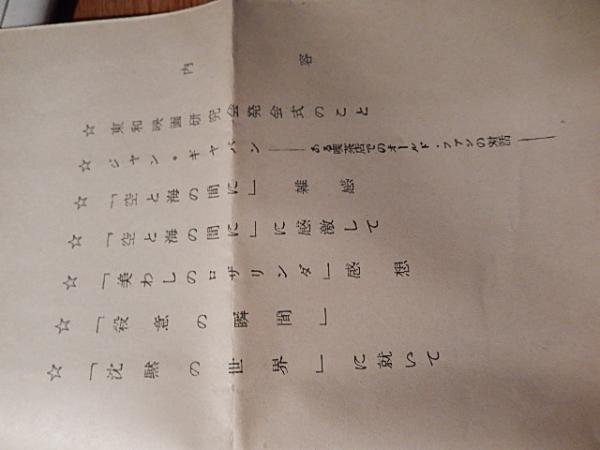 内容
☆ 東和映画研究会発会式のこと
☆ ジャン・ギャバン ――ある喫茶店でのオールド・ファンの対話――
☆ 「空と海の間に」 雑感
☆ 「空と海の間に」に感激して
☆ 「美わしのロザリンダ」感想
☆ 「殺意の瞬間」
☆ 「沈黙の世界」に就いて